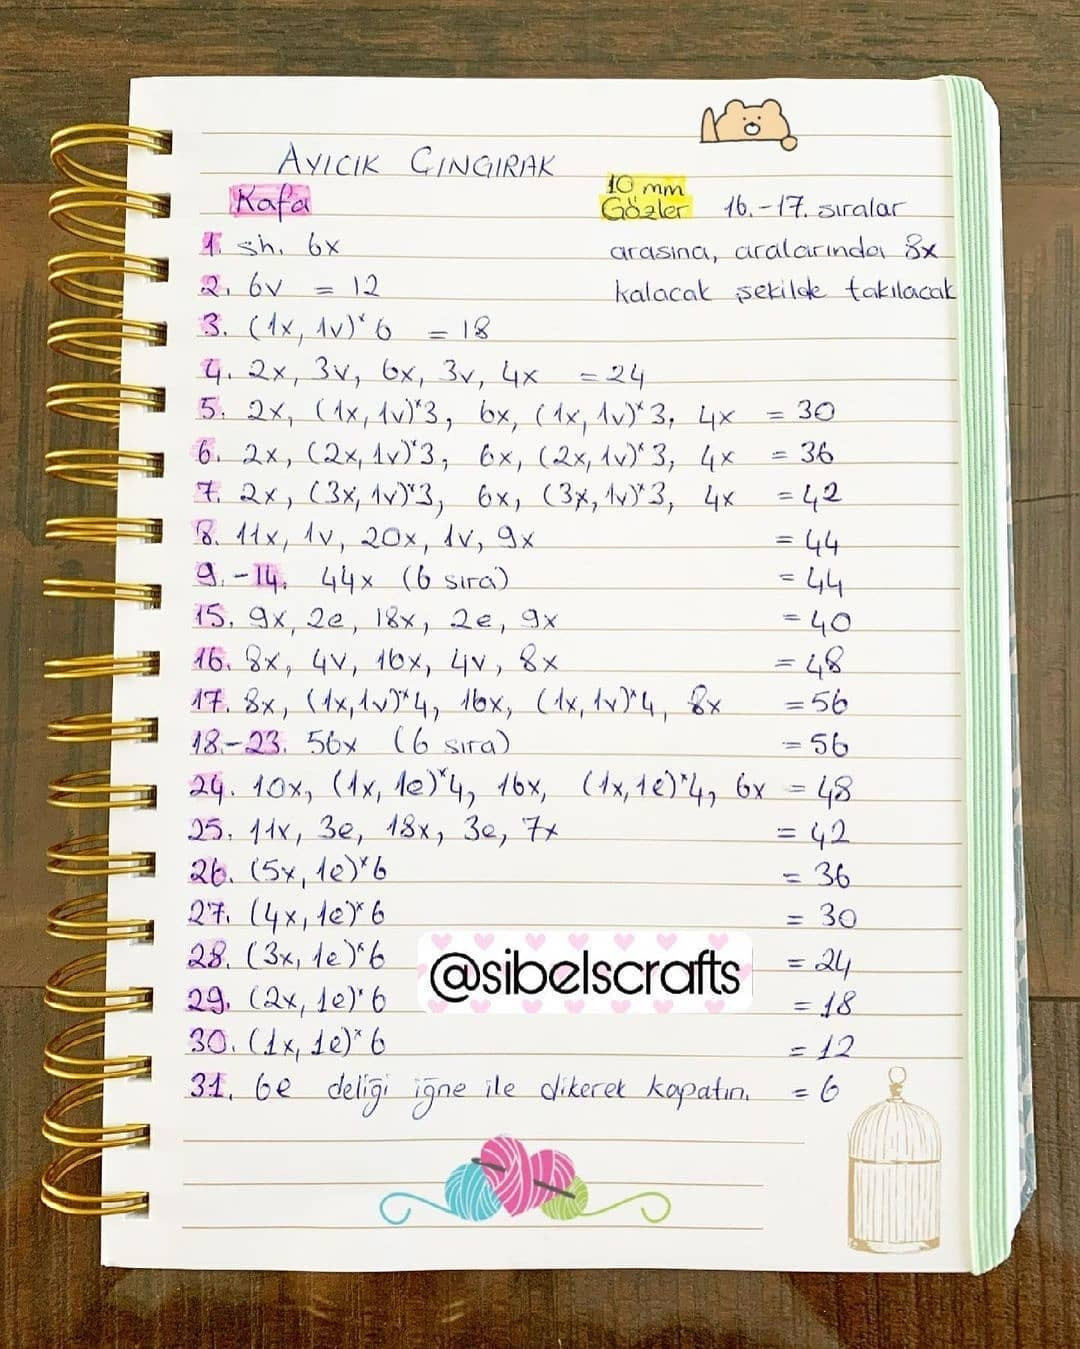 AYICIK ÇINGIRAK
Kafa
10 mm
Gözler 16.-17. sıralar
arasına, aralarında 8x
kalacak şekilde takılacak
1. sh. 6x
2. 6v = 12
3. (1x, 1v)*6 = 18
4. 2x, 3v, 6x, 3v, 4x = 24
5. 2x, (1x, 1v)*3, 6x, (1x, 1v)*3, 4x = 30
6. 2x, (2x, 1v)*3, 6x, (2x, 1v)*3, 4x = 36
7. 2x, (3x, 1v)*3, 6x, (3x, 1v)*3, 4x = 42
8. 11x, 1v, 20x, 1v, 9x = 44
9.-14. 44x (6 sıra) = 44
15. 9x, 2e, 18x, 2e, 9x = 40
16. 8x, 4v, 16x, 4v, 8x = 48
17. 8x, (1x, 1v)*4, 16x, (1x, 1v)*4, 8x = 56
18.-23. 56x (6 sıra) = 56
24. 10x, (1x, 1e)*4, 16x, (1x, 1e)*4, 6x = 48
25. 11x, 3e, 18x, 3e, 7x = 42
26. (5x, 1e)*6 = 36
27. (4x, 1e)*6 = 30
28. (3x, 1e)*6 = 24
@sibelscrafts
29. (2x, 1e)*6 = 18
30. (1x, 1e)*6 = 12
31. 6e deliği iğne ile dikerek kapatın. = 6